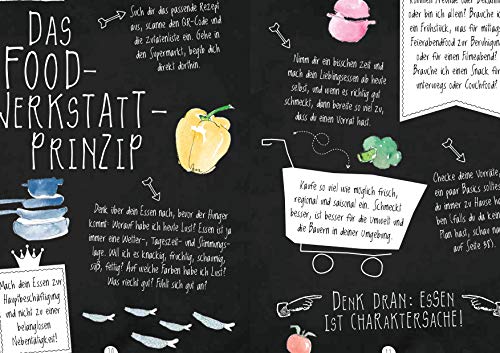 DAS
FOOD-
WERKSTATT-
PRINZIP
Such dir das passende Rezept
aus, scanne den QR-Code und
die Zutatenliste ein. Gehe in
den Supermarkt, begib dich
direkt dorthin.
Denk über dein Essen nach, bevor der Hunger
kommt: Worauf habe ich heute Lust? Essen ist ja
immer eine Wetter-, Tageszeit- und Stimmungs-
lage. Will ich es knackig, fruchtig, schaumig,
süß, fettig? Auf welche Farben habe ich Lust?
Was riecht gut? Fühlt sich gut an?
Mach dein Essen zur
Hauptbeschäftigung
und nicht zu einer
belanglosen
Nebentätigkeit!
10
oder bin ich allein? Brauche ich
ein Frühstück, was für mittags,
Feierabendfood zur Beruhigung
oder für einen Filmeabend?
Brauche ich einen Snack für
unterwegs oder Couchfood?
Nimm dir ein bisschen Zeit und
mach dein Lieblingsessen ab heute
selbst, und wenn es richtig gut
schmeckt, dann bereite so viel zu,
dass du einen Vorrat hast.
Kaufe so viel wie möglich frisch,
regional und saisonal ein. Schmeckt
besser, ist besser für die Umwelt und
die Bauern in deiner Umgebung.
Checke deine Vorräte,
ein paar Basics sollten
du immer zu Hause
(falls du da keinen
Plan hast, schau
auf Seite 38).
DENK DRAN: ESSEN
IST CHARAKTERSACHE!
11